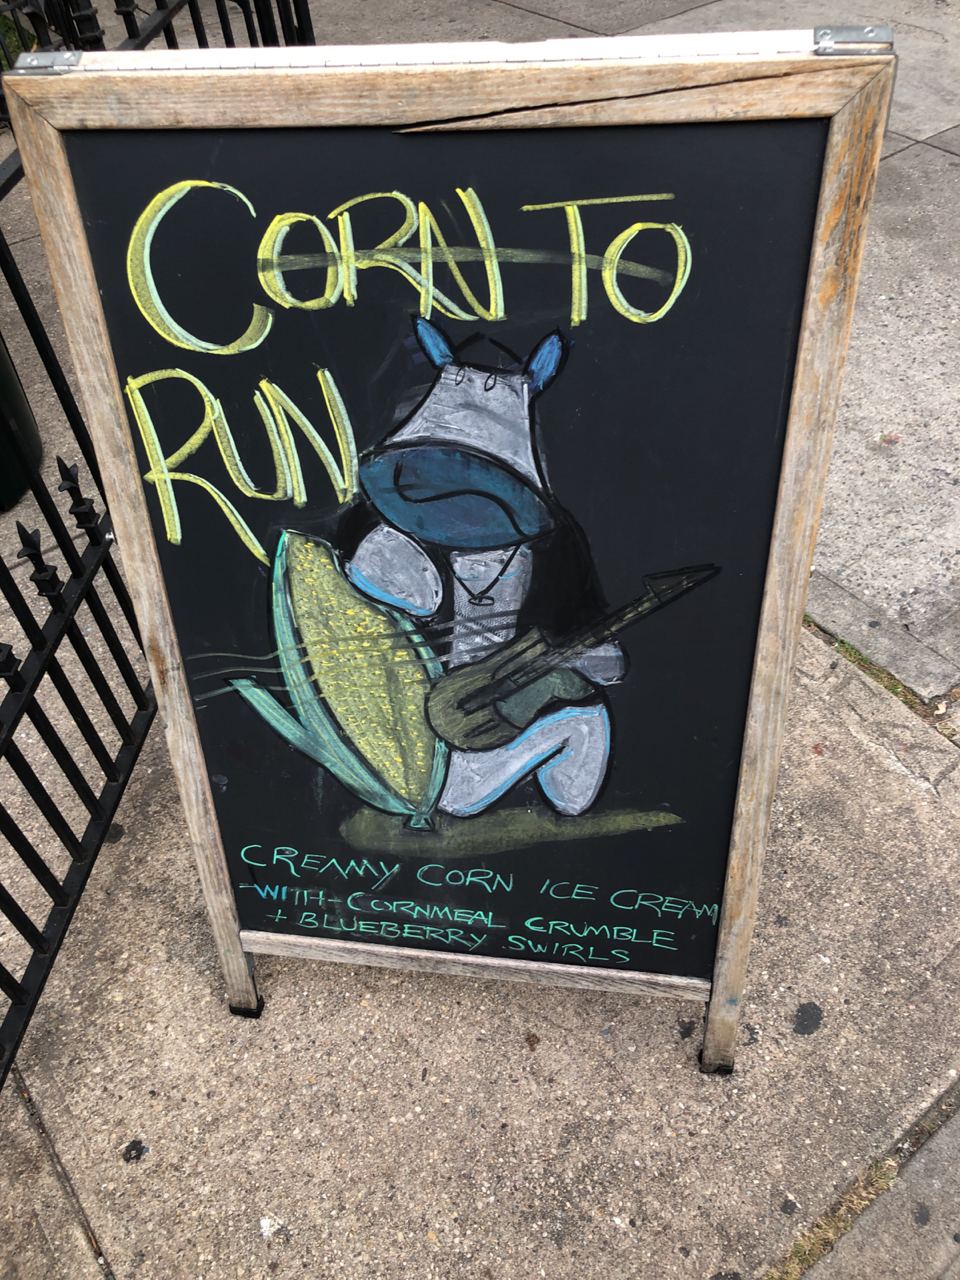 CORN TO
RUN
CREAMY CORN ICE CREAM
WITH CORNMEAL CRUMBLE
+ BLUEBERRY SWIRLS